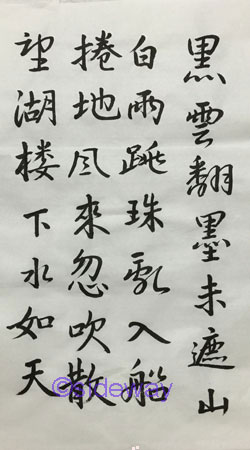 黑雲翻墨未遮山
白雨跳珠亂入船
捲地风來忽吹散
望湖楼下水如天
©sideway